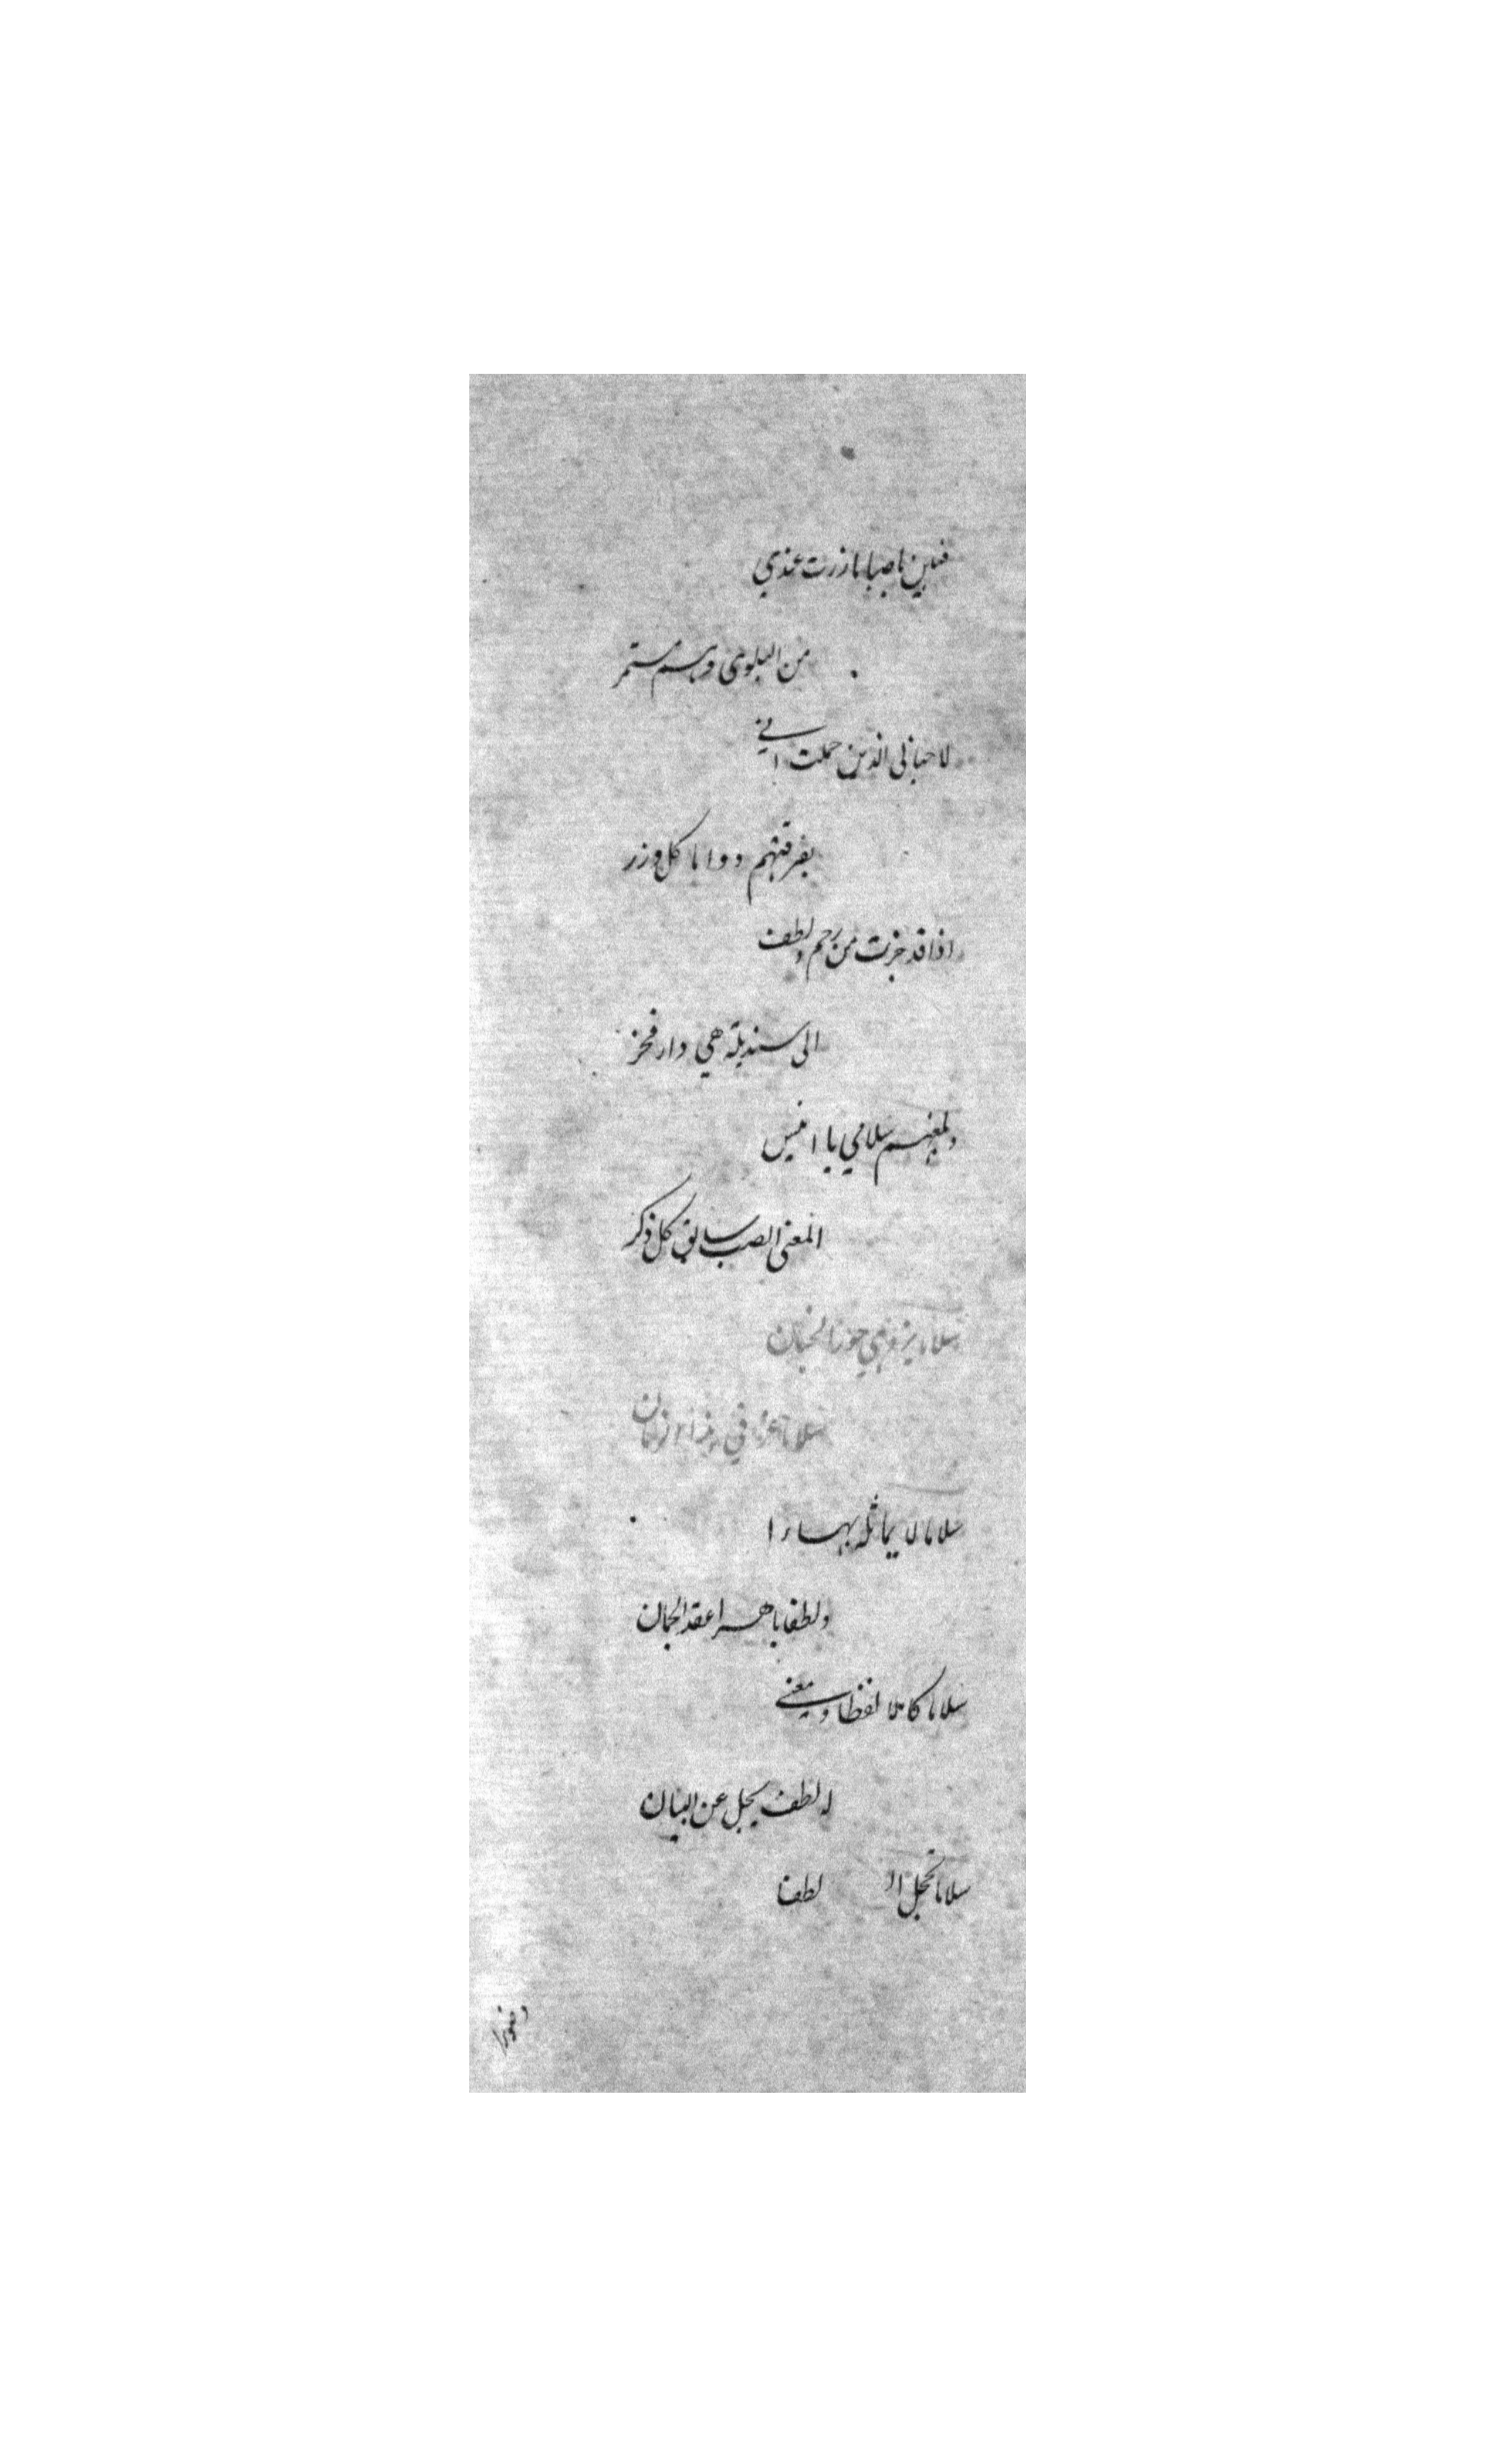 فبين يا صبا ما زرت عندي
من البلوى وهم مستمر
لاحبابي الذين حملت اني
بفرقتهم دواما كل وزر
اذا قد جزت من رحم ولطف
الى سنديلة هي دار فخر
وبلغهم سلامي يا انيس
المعنى الصب سابق كل ذكر
سلاما يزدهي حور الجنان
سلاما عز في هذا الزمان
سلاما لا يماثله بهارا
ولطفا باهرا عقد الجمان
سلاما كاملا لفظا ومعنى
له لطف يجل عن البيان
سلاما لطفا